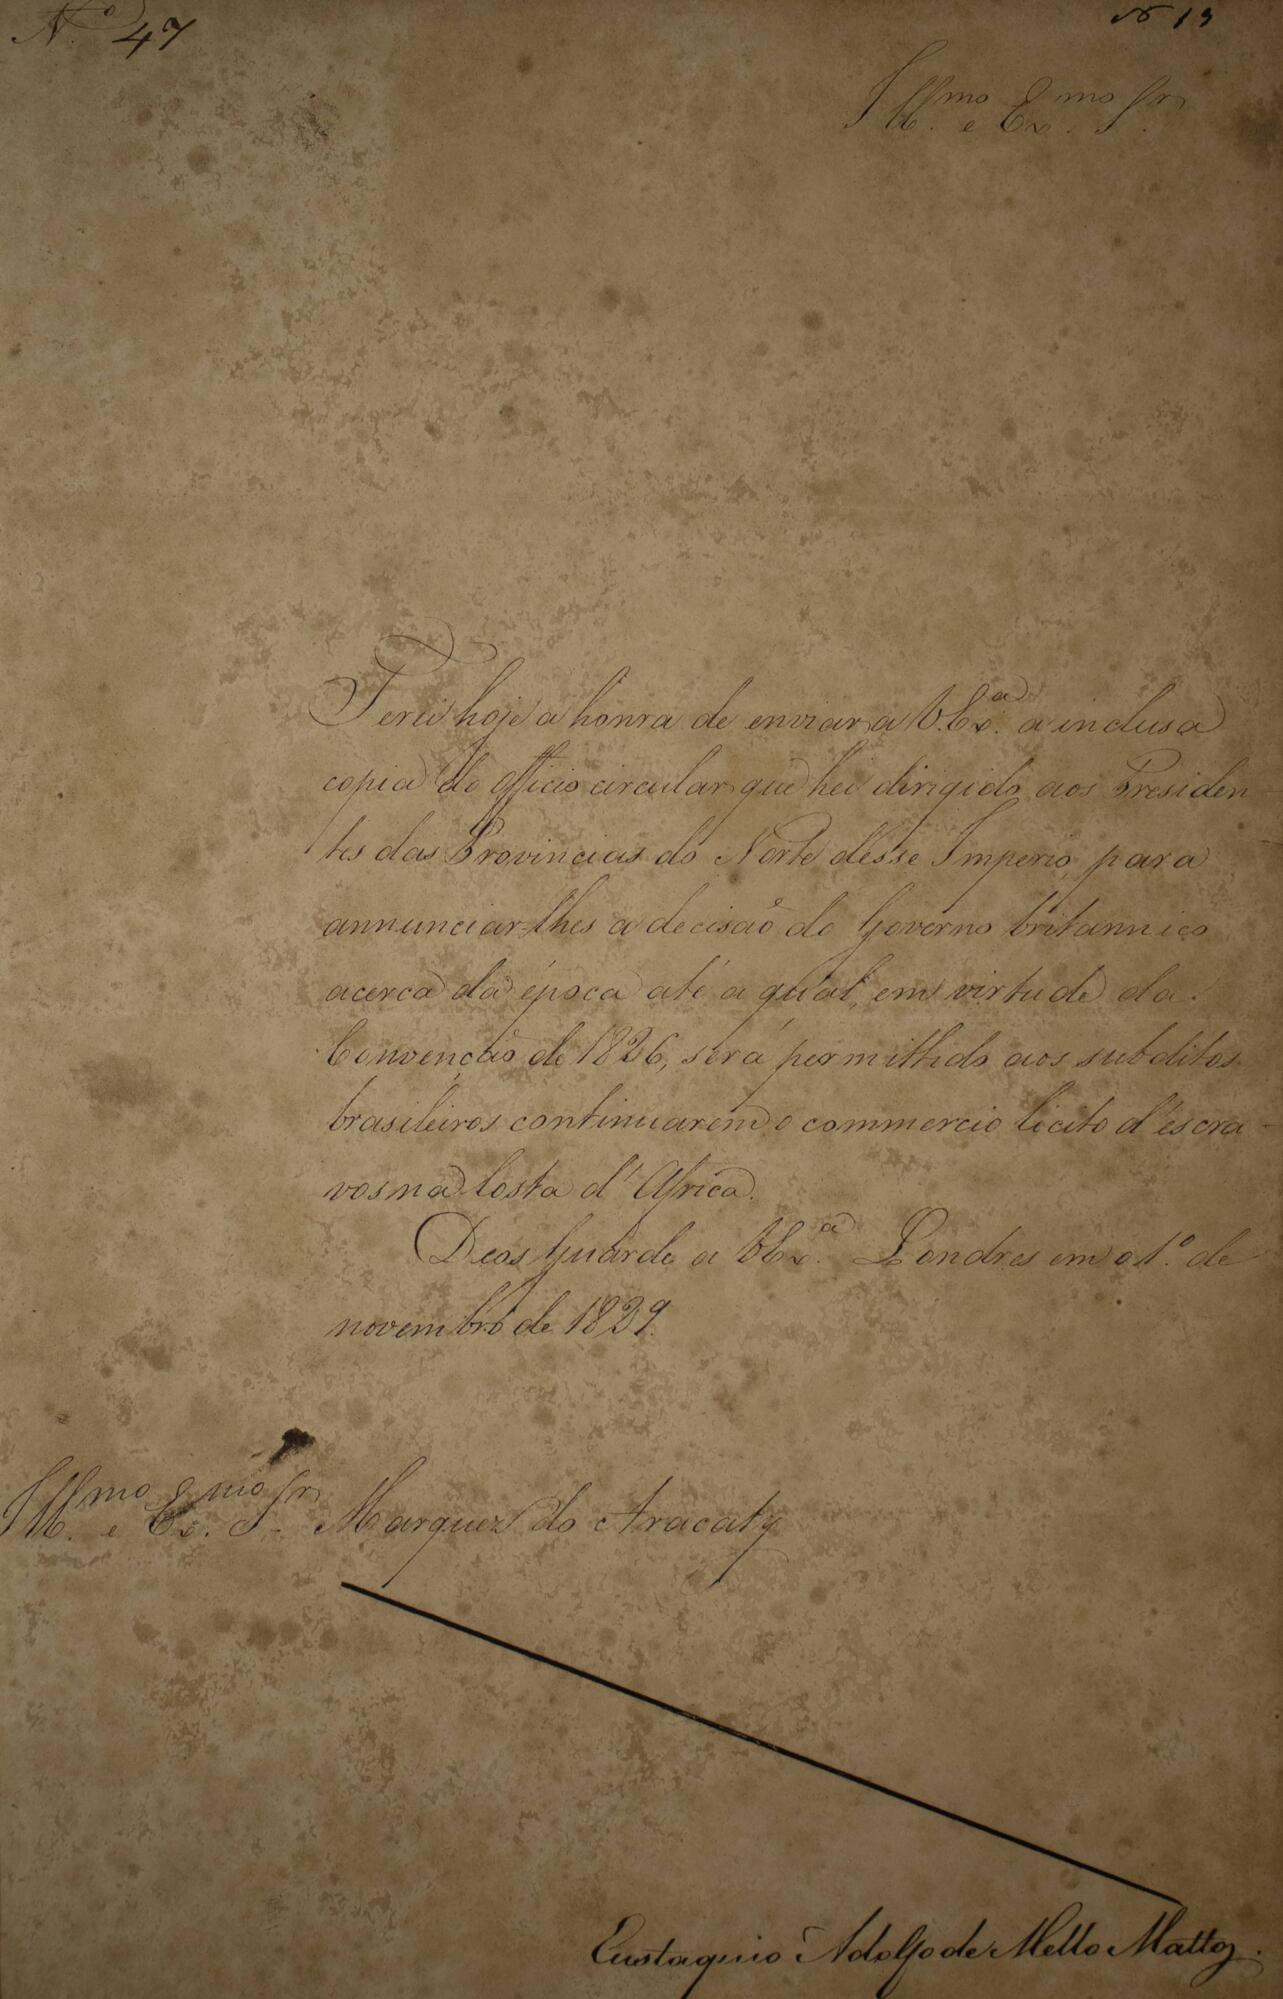 Nº 47
Nº 13
Illmo. e Exmo. Sr.
Terei hoje a honra de enviar a V.Exª. a inclusa
copia do officio circular que hei dirigido aos Presiden-
tes das Provincias do Norte desse Imperio, para
annunciar-lhes a decisão do Governo britannico
acerca da época até a qual, em virtude da
Convenção de 1826, será permittido aos subditos
brasileiros continuarem o commercio licito d'escra-
vos na Costa d'Africa.
Deos Guarde a VExª. Londres em o 1º. de
novembro de 1829.
Illmo. e Exmo. Sr. Marquez do Aracaty
Eustaquio Adolfo de Mello Mattos.